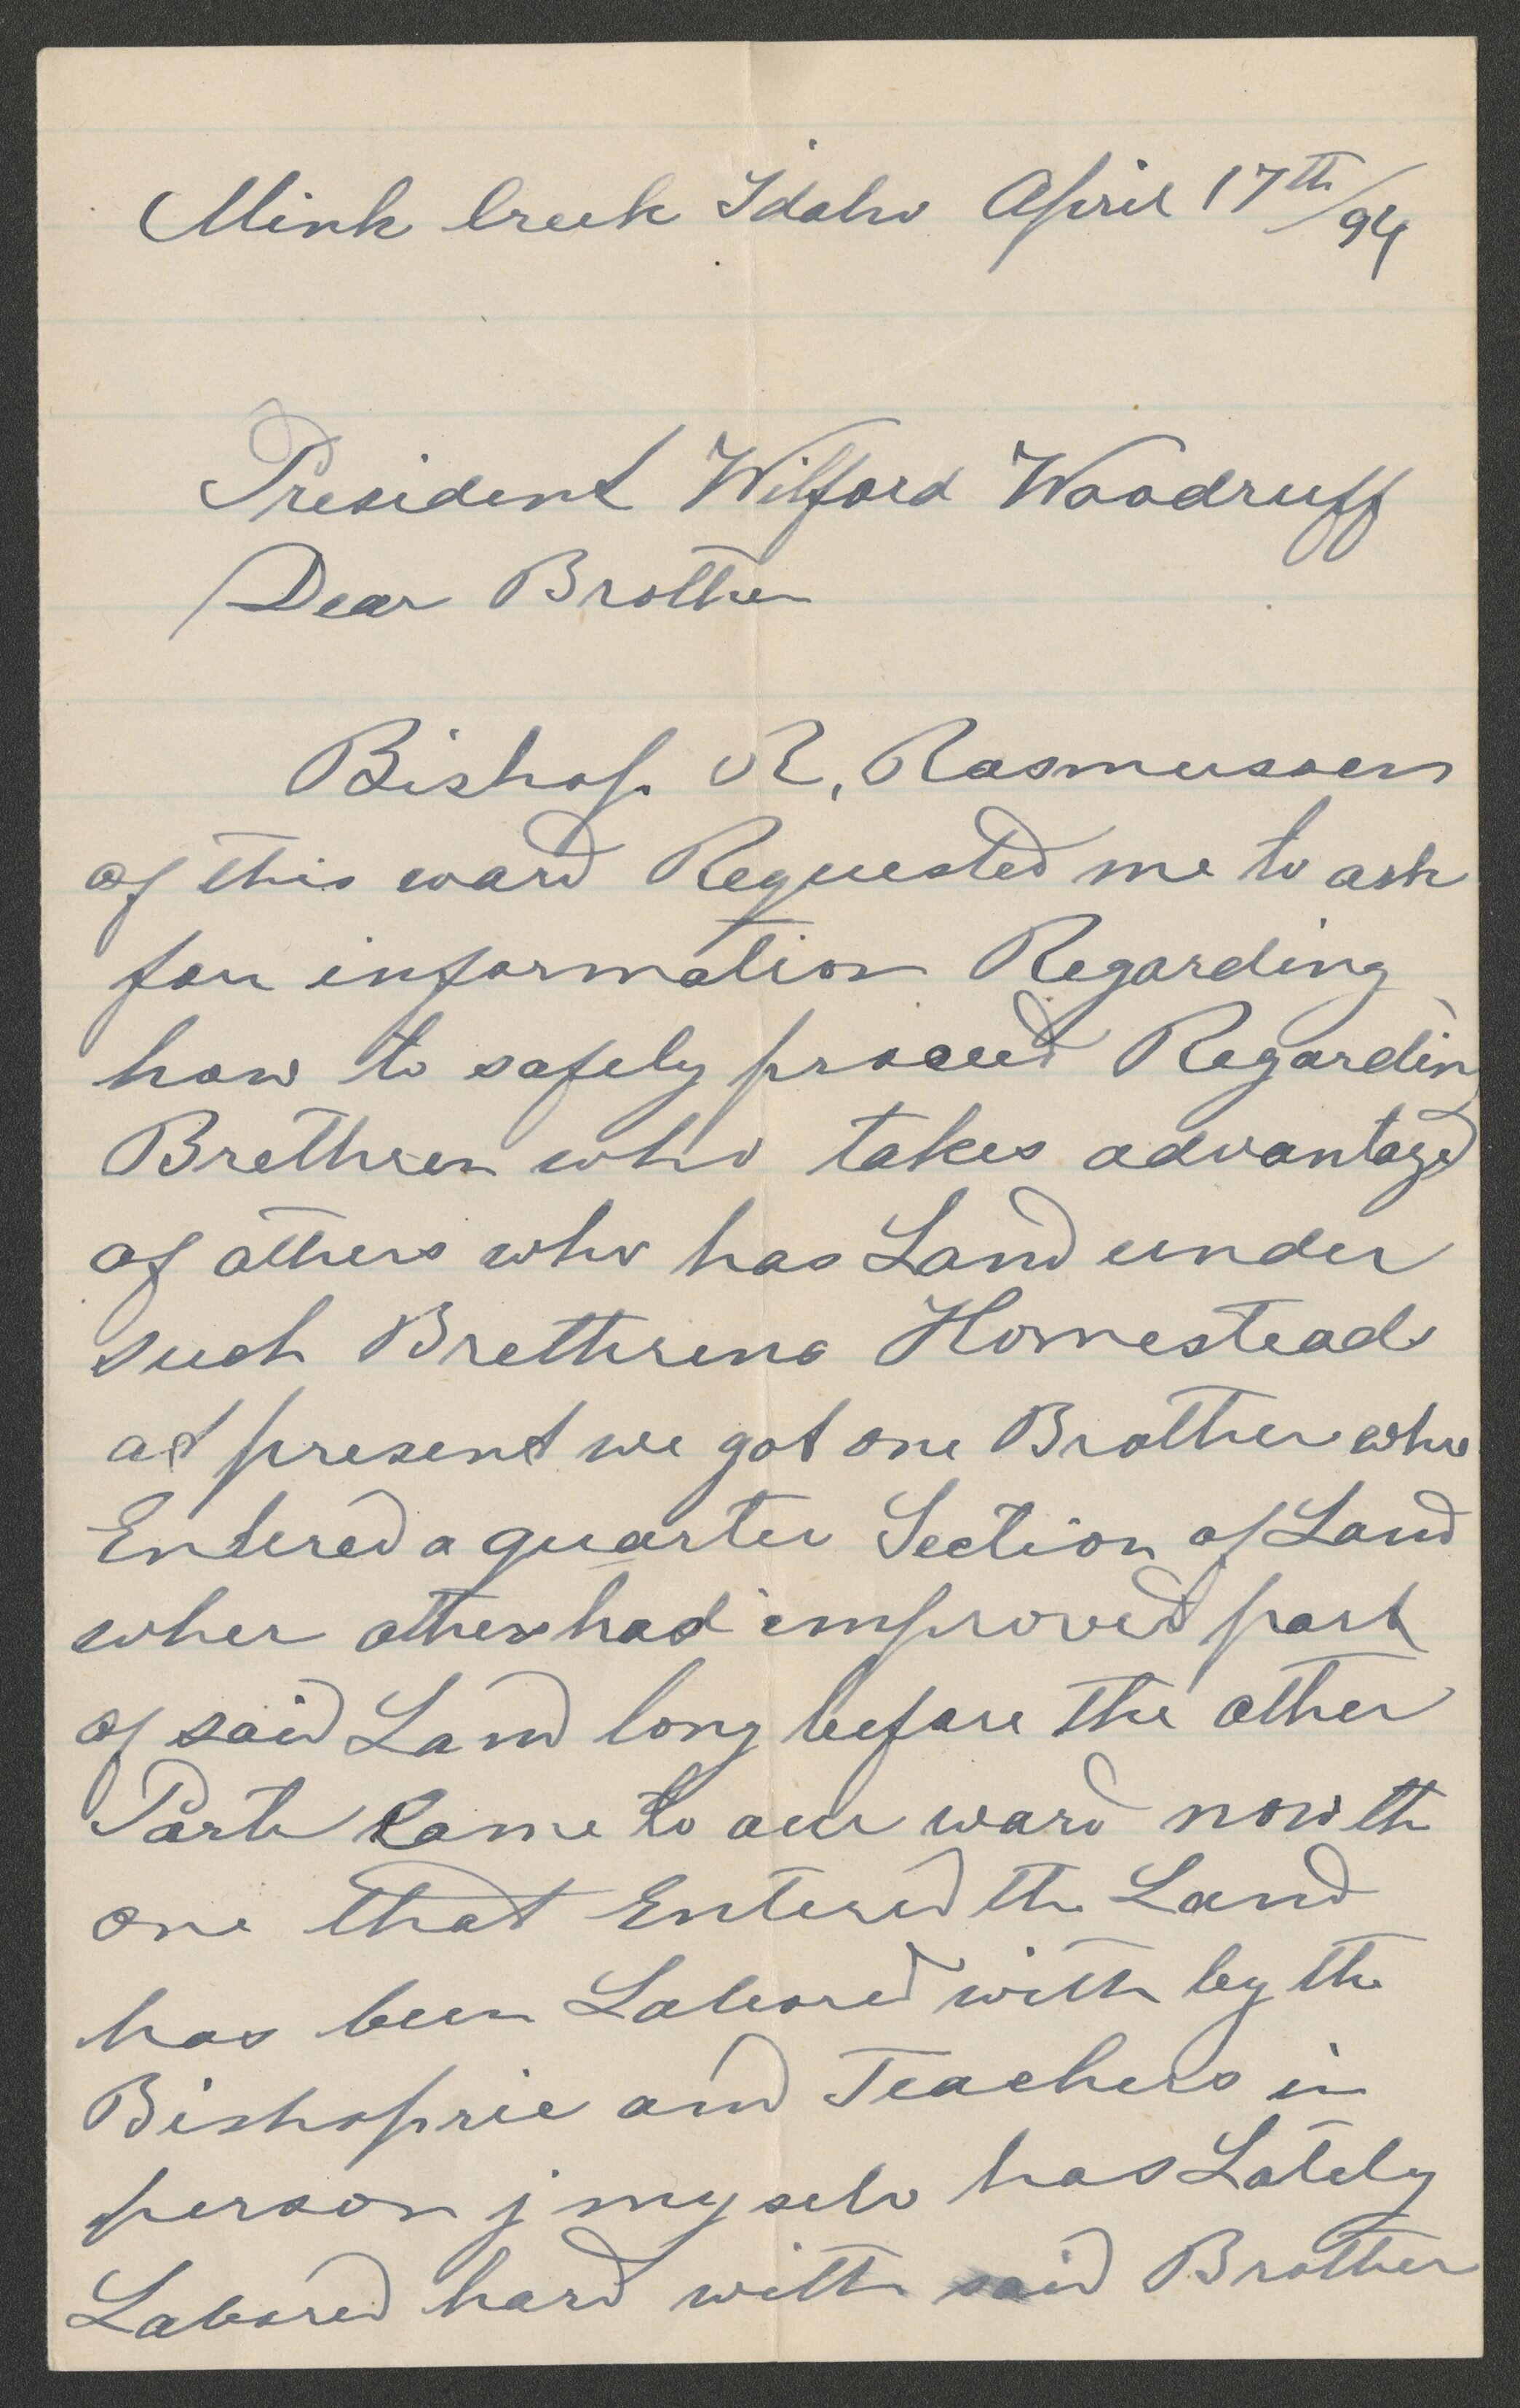 Mink Creek Idaho April 17th/94
President Wilford Woodruff
Dear Brother
Bishop. R, Rasmussen
of this ward Requested me to ask
for information Regarding
how to safely proceed Regarding
Brethren who takes advantage
of others who has Land under
such Brethrens Homestead
at present we got one Brother who
Entered a quarter Section of Land
wher others had improved part
of said Land long before the other
Part Came to our ward now th
one that Entered the Land
has been Labored with by the
Bishopric and Teachers in
person j my selv has Lately
Labored hard with said Brother